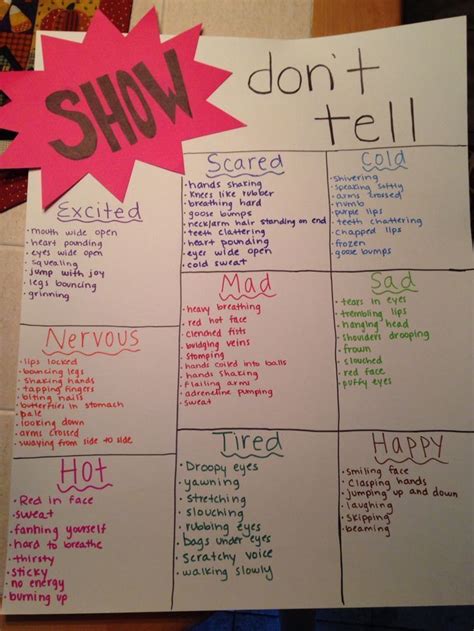 SHOW
don't
tell
Excited
• mouth wide open
• heart pounding
• eyes wide open
• squealing
• jump with joy
• legs bouncing
• grinning
Scared
• hands shaking
• knees like rubber
• breathing hard
• goose bumps
• neck/arm hair standing on end
• teeth clattering
• heart pounding
• eyes wide open
• cold sweat
Cold
• shivering
• speaking softly
• arms crossed
• numb
• purple lips
• teeth chattering
• chapped lips
• frozen
• goose bumps
Nervous
• lips locked
• bouncing legs
• shaking hands
• tapping fingers
• biting nails
• butterflies in stomach
• pale
• looking down
• arms crossed
• swaying from side to side
Mad
• heavy breathing
• red hot face
• clenched fists
• bridging veins
• stomping
• hands coiled into balls
• hands shaking
• flailing arms
• adrenaline pumping
• sweat
Sad
• tears in eyes
• trembling lips
• hanging head
• shoulders drooping
• frown
• slouched
• red face
• puffy eyes
Hot
• Red in face
• sweat
• fanning yourself
• hard to breathe
• thirsty
• sticky
• no energy
• burning up
Tired
• Droopy eyes
• yawning
• stretching
• slouching
• rubbing eyes
• bags under eyes
• Scratchy voice
• walking slowly
Happy
• smiling face
• Clasping hands
• jumping up and down
• laughing
• skipping
• beaming